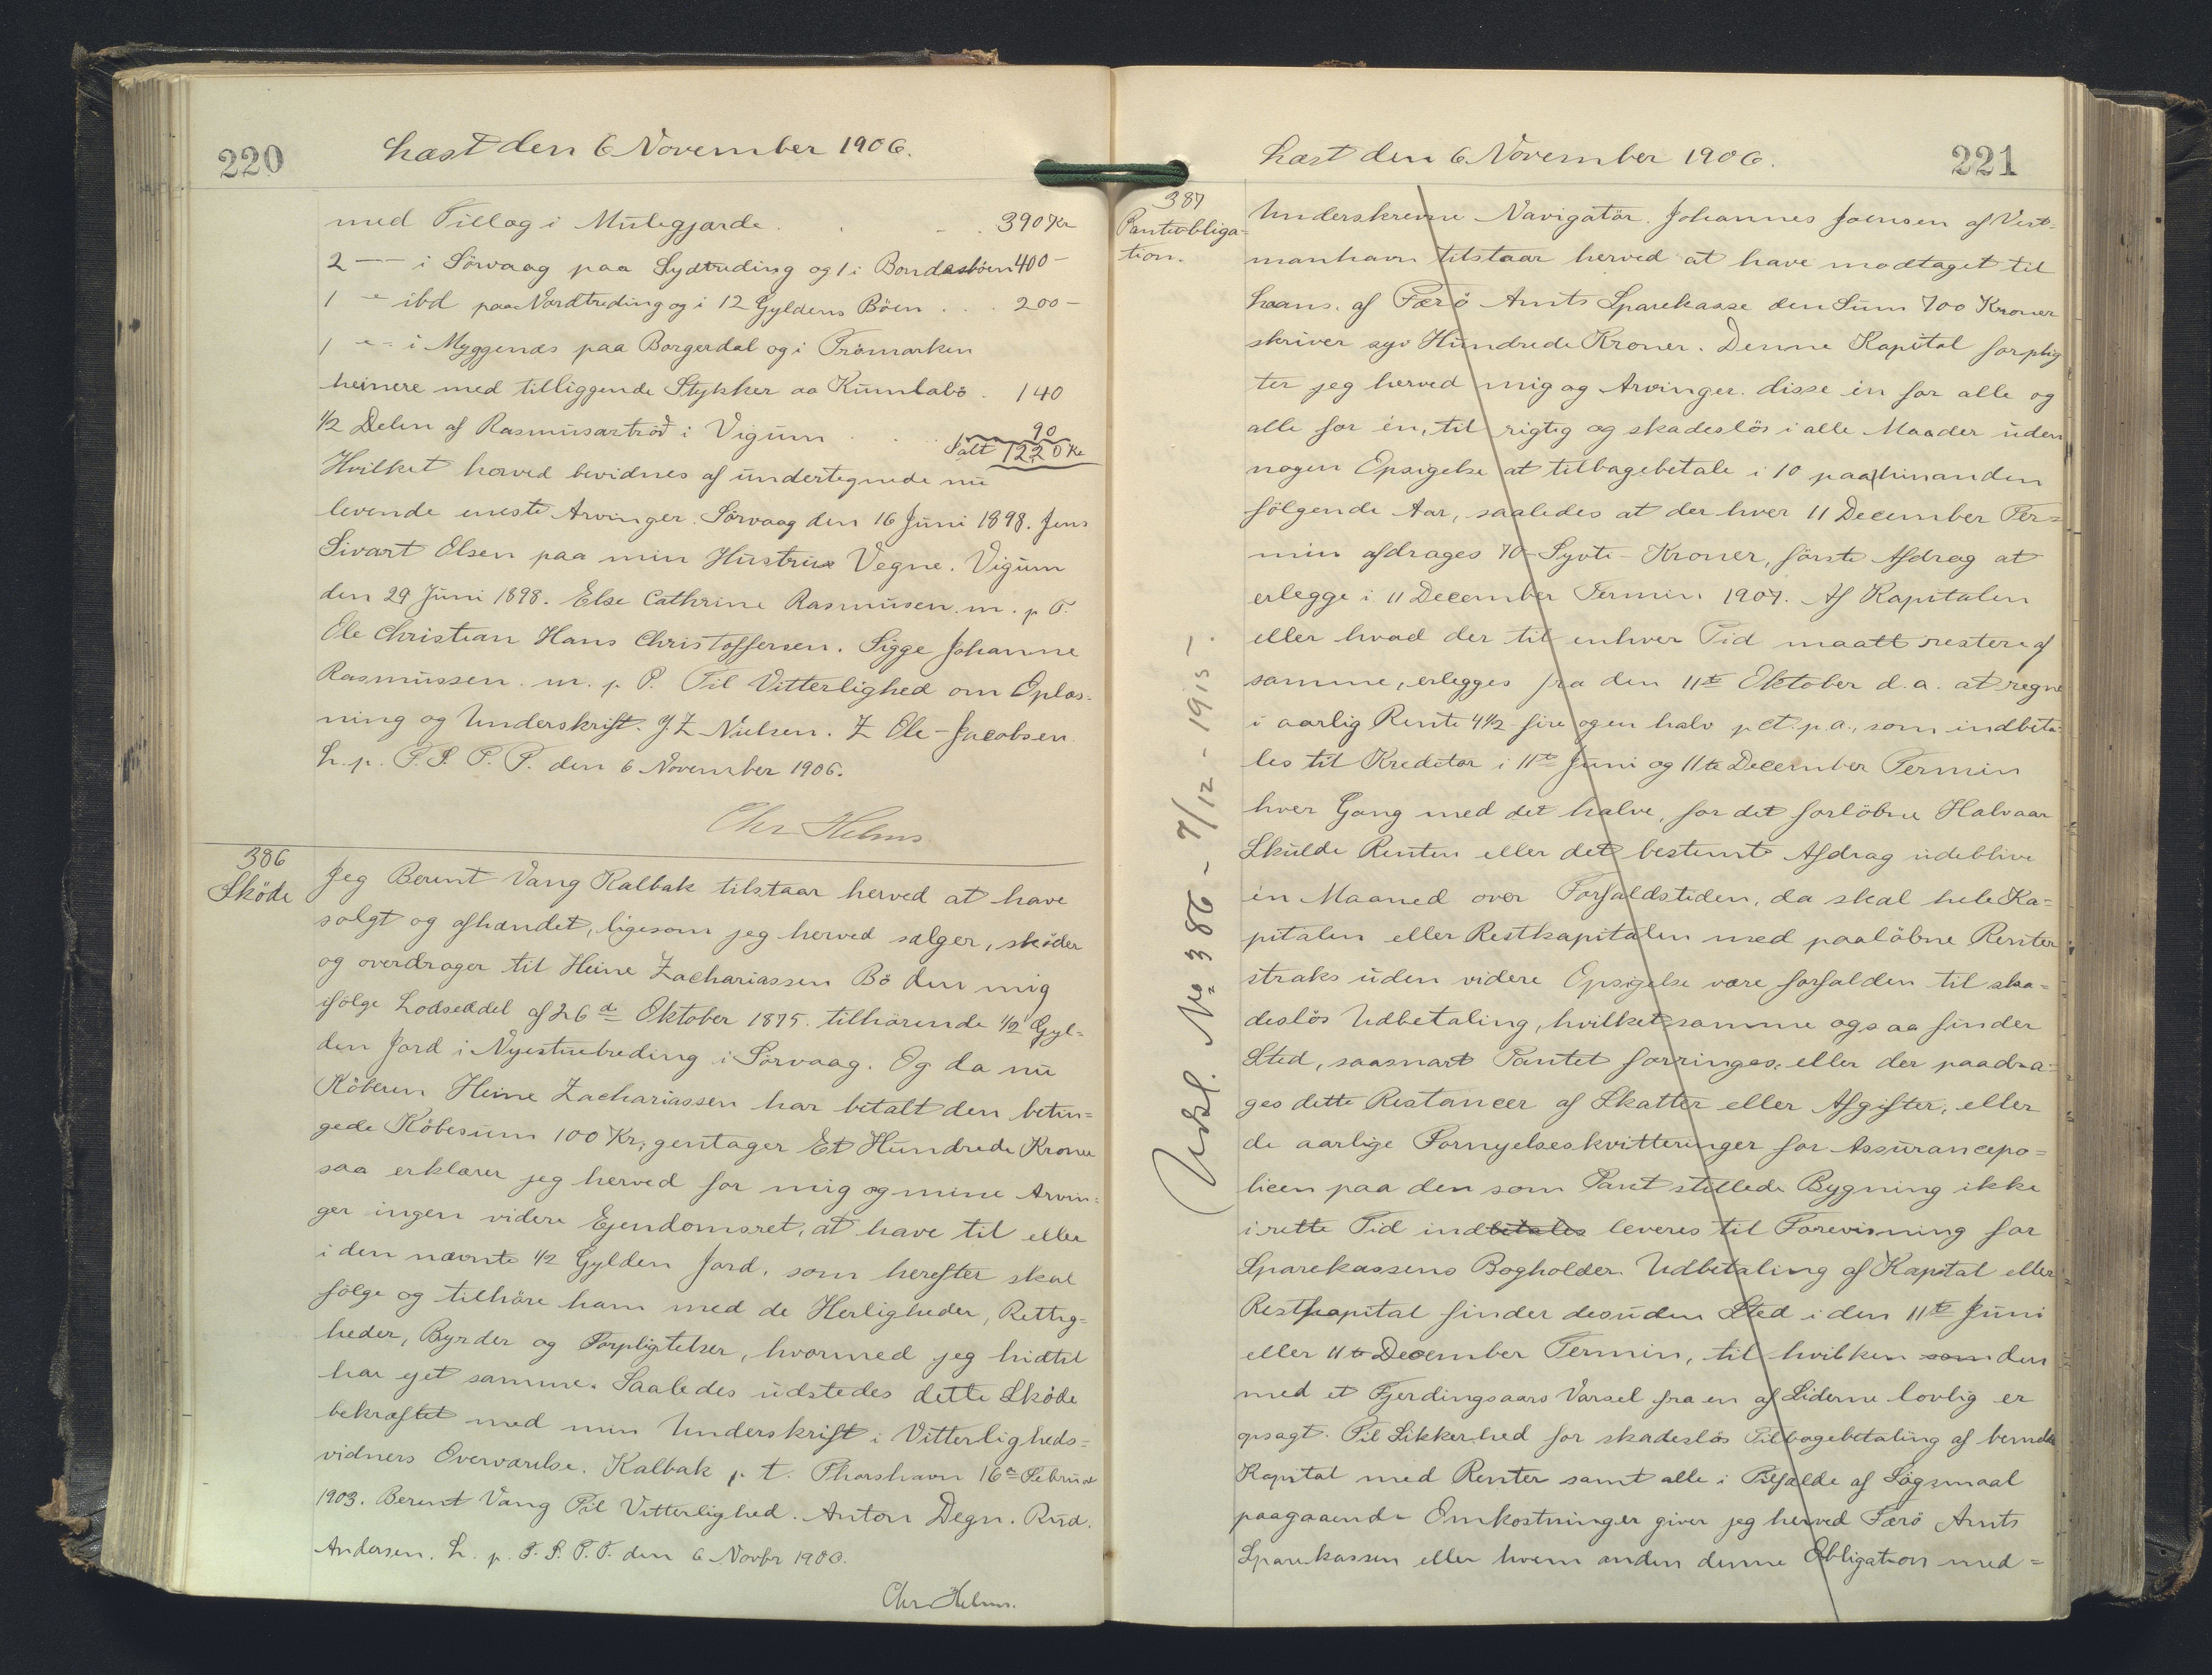 220
Læst den 6 November 1906.
med Tillæg i Mulegjærde . . . 390 Kr
2 — i Sörvaag paa Sydtreding og 1 i Bondesböen 400 —
1 — ibd paa Nordtreding og i 12 Gyldens Böen . . . 200 —
1 — i Myggenæs paa Borgerdal og i Trömarken
heinere med tilliggende Stykker aa Kumlabö . 140
1/2 Delen af Rasmusartröd i Vigum . . . 90
Ialt 1220 Kr
Hvilket herved bevidnes af undertegnede nu
levende eneste Arvinger. Sörvaag den 16 Juni 1898. Jens
Sivart Olsen paa min Hustrus Vegne. Vigum
den 29 Juni 1898. Else Cathrine Rasmusen. m. p. P.
Ole Christian Hans Christoffersen. Sigge Johanne
Rasmussen. m. p. P. Til Vitterlighed om Oplæs-
ning og Underskrift. J. Z. Nielsen. Z Ole-Jacobsen.
L. p. F. S. P. T. den 6 November 1906.
Chr Helms.
386
Sköde
Jeg Berint Vang Kalbak tilstaar herved at have
solgt og afhændet, ligesom jeg herved sælger, sköder
og overdrager til Heine Zachariassen Bö den mig
ifölge Lodseddel af 26de Oktober 1875. tilhörende 1/2 Gyl-
den Jord i Nyestuetreding i Sörvaag. Og da nu
Köberen Heine Zachariassen har betalt den betin-
gede Köbesum 100 Kr, gentager Et Hundrede Kroner
saa erklærer jeg herved for mig og mine Arvin-
ger ingen videre Ejendomsret, at have til eller
i den nævnte 1/2 Gylden Jord, som herefter skal
fölge og tilhöre ham med de Herligheder, Rettig-
heder, Byrder og Forpligtelser, hvormed jeg hidtil
har ejet samme. Saaledes udstedes dette Sköde
bekræftet med min Underskrift i Vitterligheds-
vidners Overværelse. Kalbak p. t. Thorshavn 16de Februar
1903. Berent Vang Til Vitterlighed. Anton Degn. Rud.
Andersen. L. p. F. S. P. T. den 6 Novbr 1906.
Chr Helms.
Læst den 6 November 1906.
221
387
Pantobliga-
tion.
Underskrevne Navigatör Johannes Joensen af Vest-
manhavn tilstaar herved at have modtaget til
Laans af Færö Amts Sparekasse den Sum 700 Kroner
skriver syv Hundrede Kroner. Denne Kapital forplig
ter jeg herved mig og Arvinger. disse én for alle og
alle for én, til rigtig og skadeslös i alle Maader uden
nogen Opsigelse at tilbagebetale i 10 paa hinanden
fölgende Aar, saaledes at der hver 11 December Ter-
min afdrages 70 - Syvti - Kroner, förste Afdrag at
erlegge i 11 December Termin 1907. Af Kapitalen
eller hvad der til enhver Tid maatt restere af
samme, erlegges fra den 11te Oktober d. a. at regne
i aarlig Rente 4 1/2 fire og en halv p Ct. p. a., som indbeta-
les til Kreditor i 11te Juni og 11te December Termin
hver Gang med det halve, for det forlöbne Halvaar
Skulde Renten eller det bestemte Afdrag udeblive
en Maaned over Forfaldstiden, da skal hele Ka-
pitalen eller Restkapitalen med paalöbne Renter
straks uden videre Opsigelse være forfalden til ska-
deslös Udbetaling, hvilket samme ogsaa finder
Sted, saasnart Pantet forringes, eller der paadra-
ges dette Restancer af Skatter eller Afgifter, eller
de aarlige Fornyelseskvitteringer for Assurancepo-
licen paa den som Pant stillede Bygning ikke
i rette Tid indbetales leveres til Forevisning for
Sparekassens Bogholder. Udbetaling af Kapital eller
Restkapital finder desuden Sted i den 11te Juni
eller 11te December Termin, til hvilken som den
med et Fjerdingaars Varsel fra en af Siderne lovlig er
opsagt. Til Sikkerhed for skadeslös Tilbagebetaling af bemeldte
Kapital med Renter samt alle i Tilfælde af Sögsmaal
paagaaende Omkostninger giver jeg herved Færö Amts
Sparekassen eller hvem anden denne Obligation med-
Udsl. No 386 - 7/12 - 1915 -.